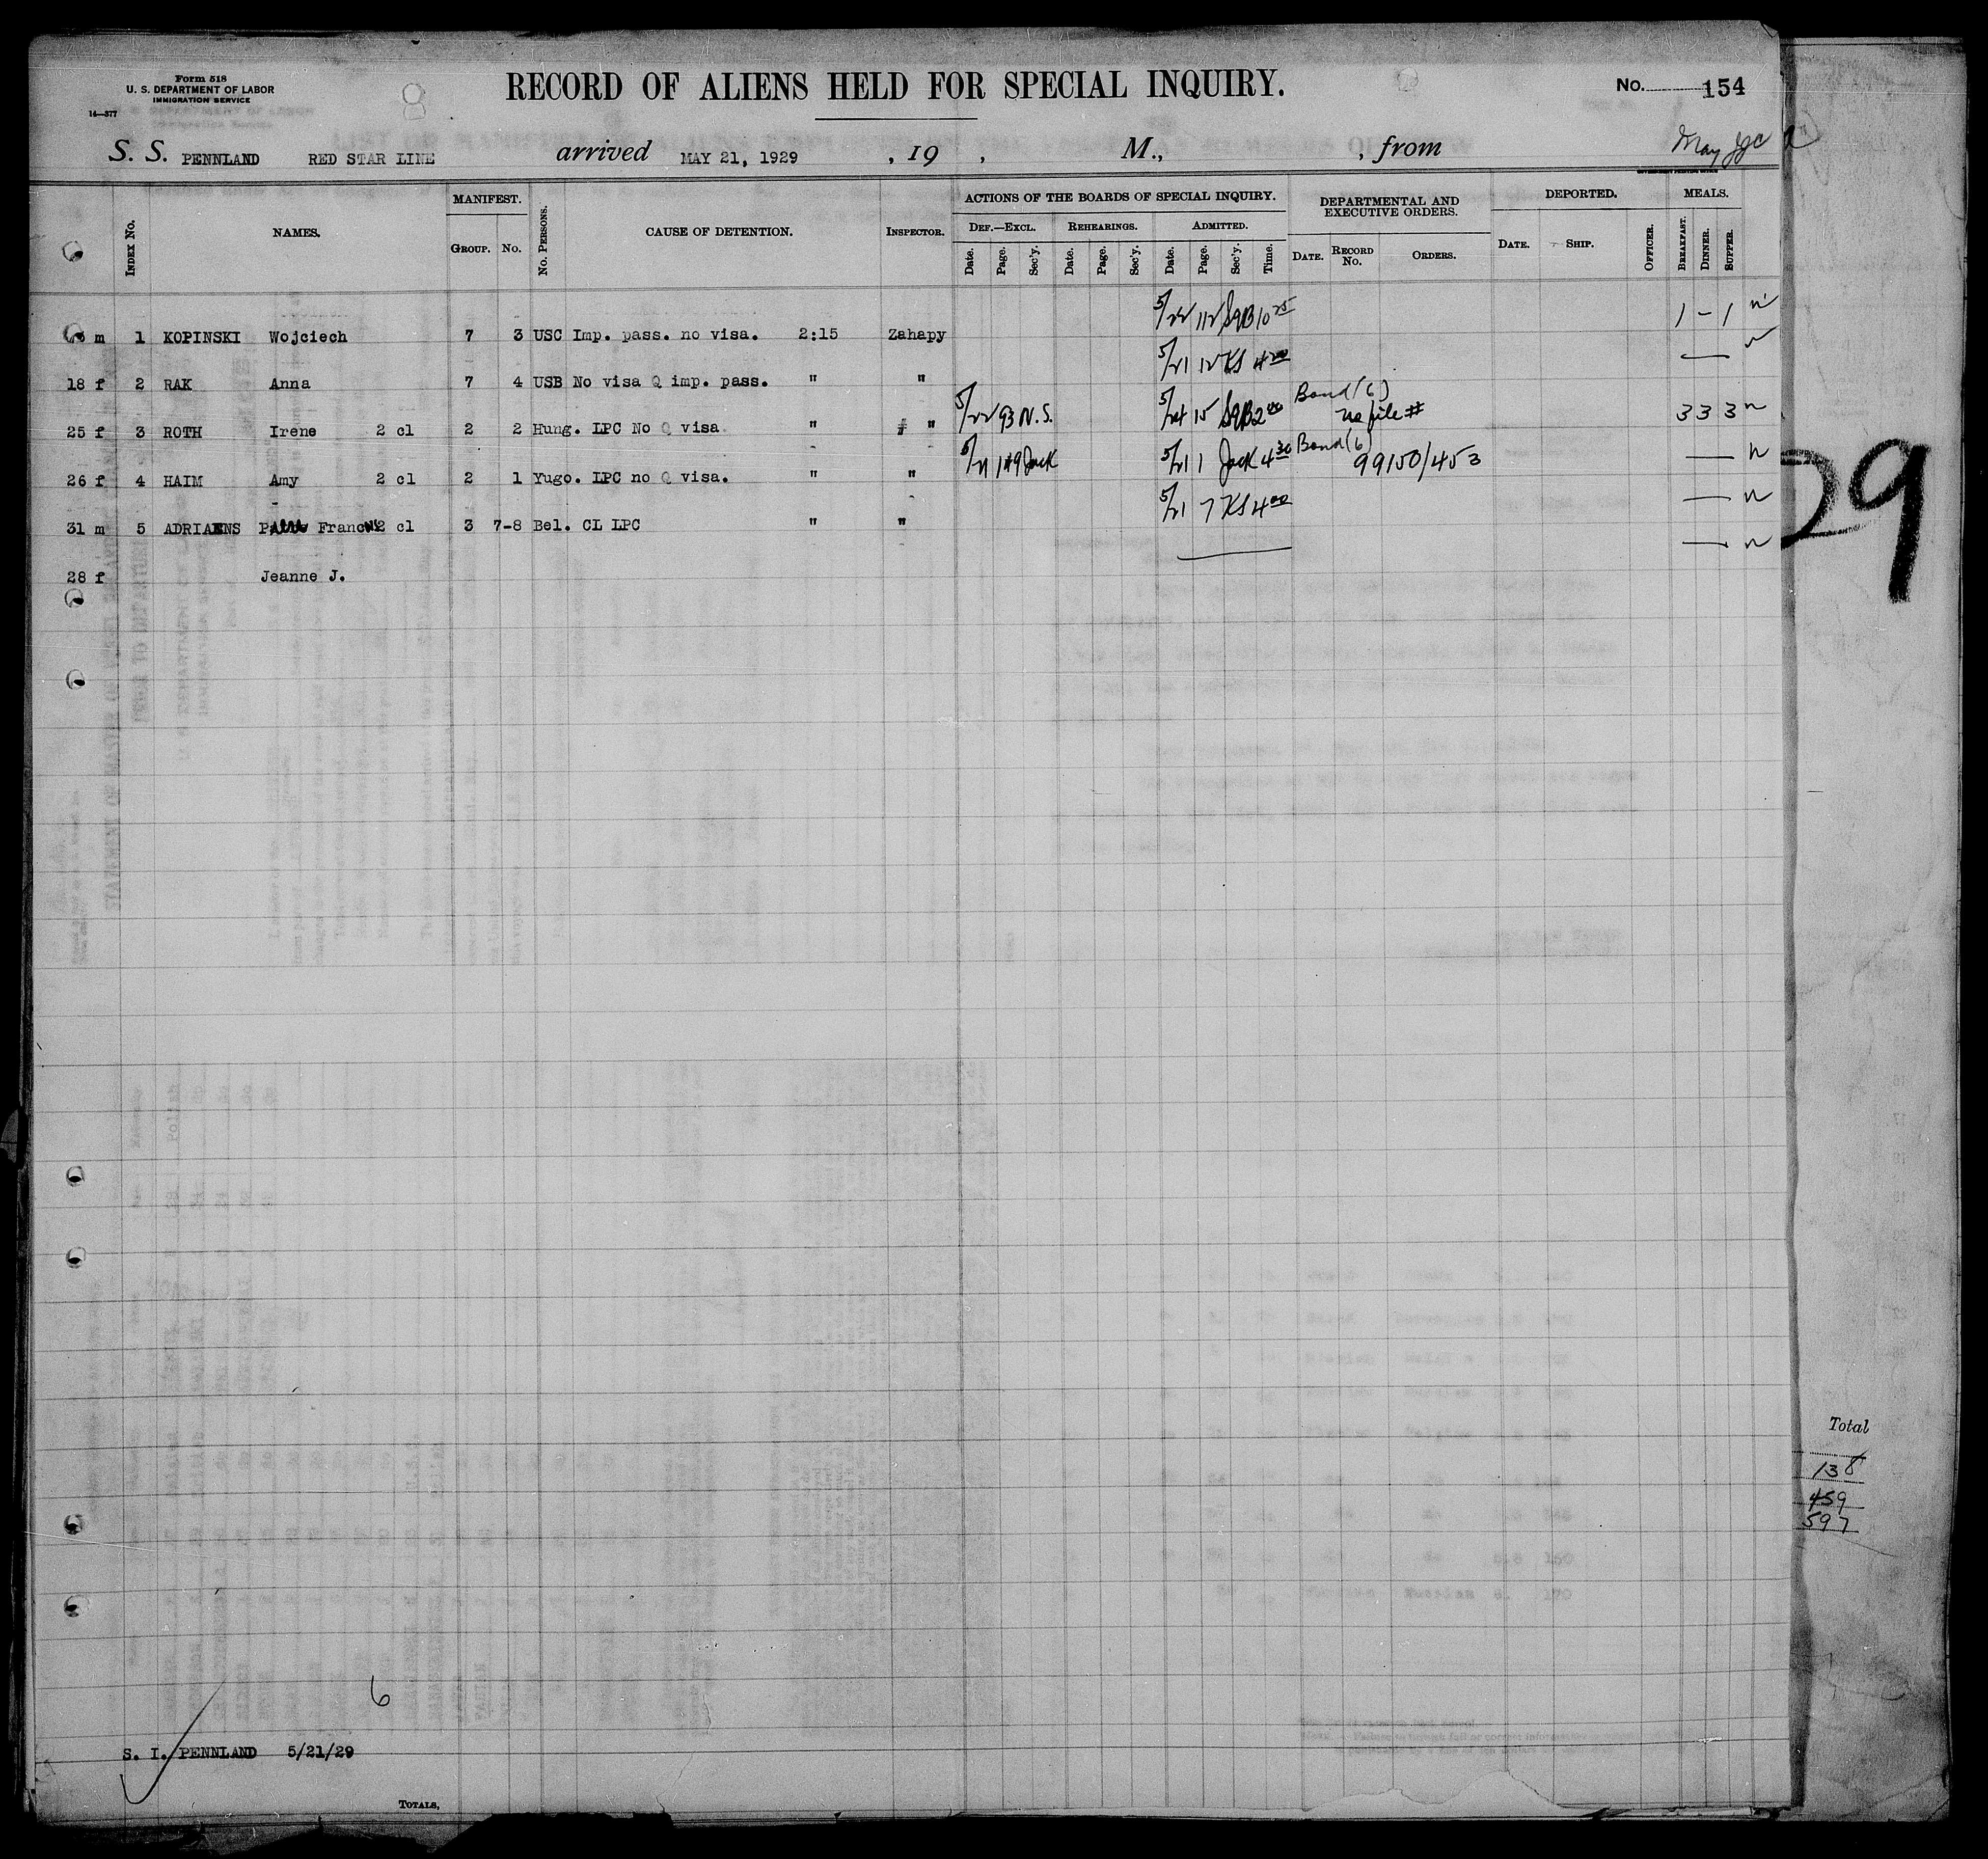 Form 518
U. S. DEPARTMENT OF LABOR
IMMIGRATION SERVICE
14—577
8
RECORD OF ALIENS HELD FOR SPECIAL INQUIRY.
No. 154
S. S. PENNLAND RED STAR LINE arrived MAY 21, 1929 , 19 , M., , from
May
INDEX No. NAMES. MANIFEST. GROUP. No. No. PERSONS. CAUSE OF DETENTION. INSPECTOR. ACTIONS OF THE BOARDS OF SPECIAL INQUIRY. DEPARTMENTAL AND EXECUTIVE ORDERS. DEPORTED. MEALS.
DEF.—EXCL. REHEARINGS. ADMITTED.
Date. Page. Sec'y. Date. Page. Sec'y. Date. Page. Sec'y. Time. DATE. RECORD No. ORDERS. DATE. SHIP. OFFICER. BREAKFAST. DINNER. SUPPER.
m 1 KOPINSKI Wojciech 7 3 USC Imp. pass. no visa. 2:15 Zahapy 5/22 112 SqB 10 25 1 - 1
18 f 2 RAK Anna 7 4 USB No visa Q imp. pass. " " 5/21 12 KS 4 00 —
25 f 3 ROTH Irene 2 cl 2 2 Hung. LPC No Q visa " " 5/22 93 N.S. 5/24 15 SqB 2 00 Bond (6) no file # 3 3 3 n
26 f 4 HAIM Amy 2 cl 2 1 Yugo. LPC no Q visa. " " 5/21 149 Jack 5/21 1 Jack 4 30 Bond (6) 99150/453 — n
31 m 5 ADRIAENS Francs 2 cl 3 7-8 Bel. CL LPC " " 5/21 7 KS 4 00 — n
28 f Jeanne J. — n
29
Total
138
459
597
6
S. I. PENNLAND 5/21/29
TOTALS,